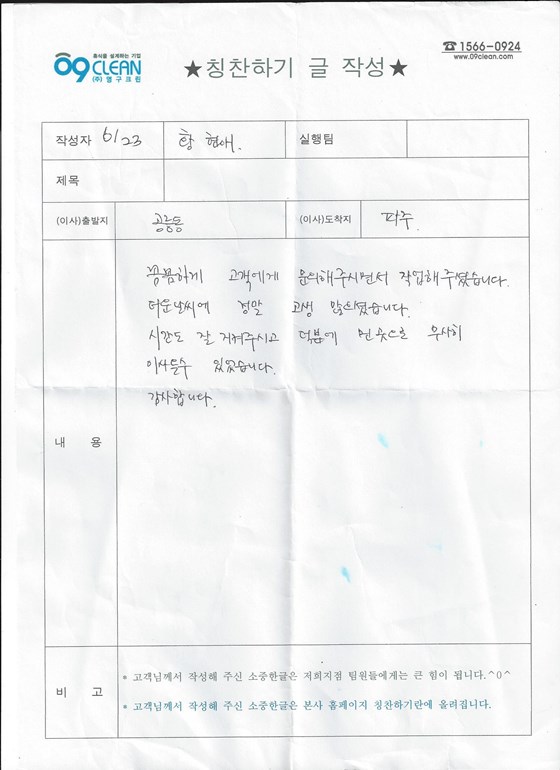 휴식을 설계하는 기업
09 CLEAN
(주)영구크린
★칭찬하기 글 작성★
☎ 1566-0924
www.09clean.com
작성자 6/23 황현애. 실행팀
제목
(이사)출발지 공릉동 (이사)도착지 파주.
내 용
꼼꼼하게 고객에게 문의해주시면서 작업해주셨습니다.
더운날씨에 정말 고생 많으셨습니다.
시간도 잘 지켜주시고 덕분에 먼곳으로 무사히
이사올수 있었습니다.
감사합니다.
비 고
* 고객님께서 작성해 주신 소중한글은 저희지점 팀원들에게는 큰 힘이 됩니다.^0^
* 고객님께서 작성해 주신 소중한글은 본사 홈페이지 칭찬하기란에 올려집니다.